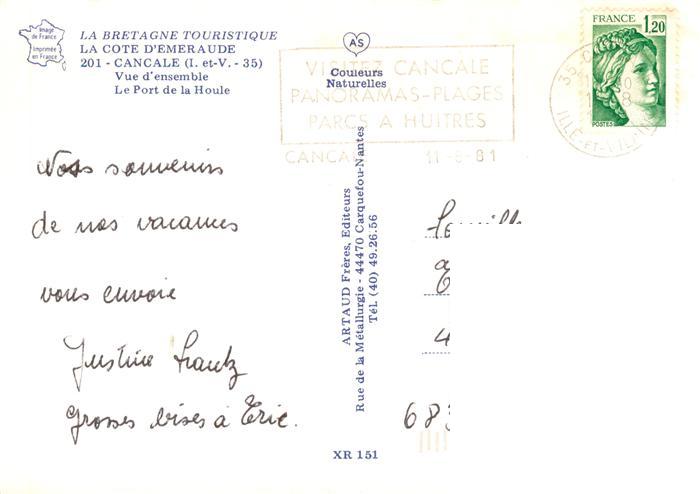 Image
de France
Imprimée
en France
LA BRETAGNE TOURISTIQUE
LA COTE D'EMERAUDE
201 - CANCALE (I. et-V. - 35)
Vue d'ensemble
Le Port de la Houle
AS
Couleurs
Naturelles
VISITEZ CANCALE
PANORAMAS-PLAGES
PARCS A HUITRES
CANCA 11-8-81
FRANCE
1,20
POSTES
35
ILLE-ET-VILAINE
Nos souvenirs
de nos vacances
vous envoie
Justine
Grosses bises à Eric.
ARTAUD Frères, Editeurs
Rue de la Métallurgie - 44470 Carquefou-Nantes
Tél. (40) 49.26.56
4
68
XR 151